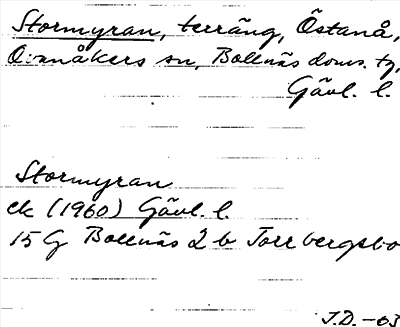 Stormyran, terräng, Östanå,
O:måkers sn, Bollnäs doms. tg,
Gävl. l.
Stormyran
ek (1960) Gävl. l.
15 G Bollnäs 2 b Torrbergsbo
J.D. -63